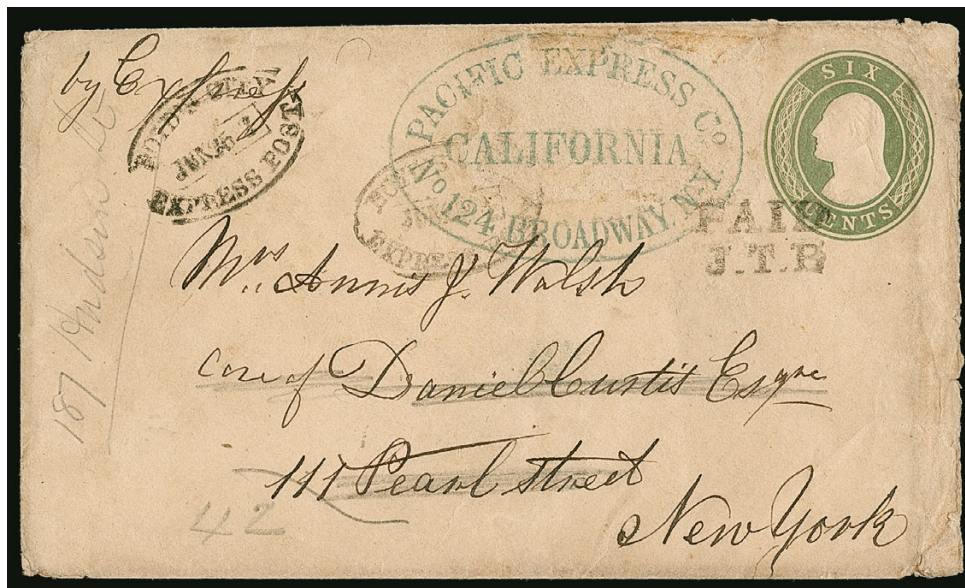 by Express
BOYD'S CITY
JUN 26
EXPRESS POST
PACIFIC EXPRESS Co
CALIFORNIA
No 124 BROADWAY N.Y.
EXPRE
SIX
CENTS
PAID
J.T.B
Mrs. Annis J. Walsh
Care of Daniel Curtis Esqre
111 Pearl Street
New York
187 Hudson St
42